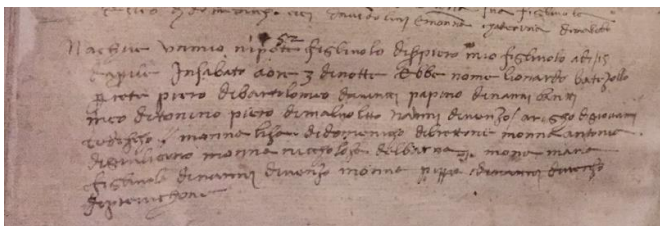 52
Nachue unmio nipote figliuolo diserpiero mio figliuolo adi 15
daprile Insabato aore 3 dinotte Ebbe nome lionardo batezollo
prete piero dibartolomeo davinci papino dinanni banti
meo ditonino piero dimalvolto nanni divenzo / arigo digiovani
tedescho / monna lisa didomenicho dibrettone monna antonia
digiuliano monna nicholosa delbarna mona maria
figliuola dinanni divenzo monna pippa dinanni divenzo
diprevichone